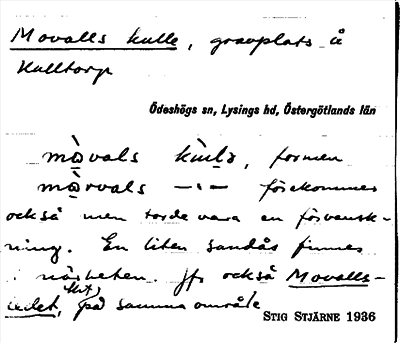 Movalls kulle, gravplats å
Hulltorp
Ödeshögs sn, Lysings hd, Östergötlands län
mòvals kùlə, formen
mòrvals –"– förekommer
också men torde vara en förvansk-
ning. En liten sandås finnes
i närheten. Jfr också Movalls-
ledet, på samma område
STIG STJÄRNE 1936